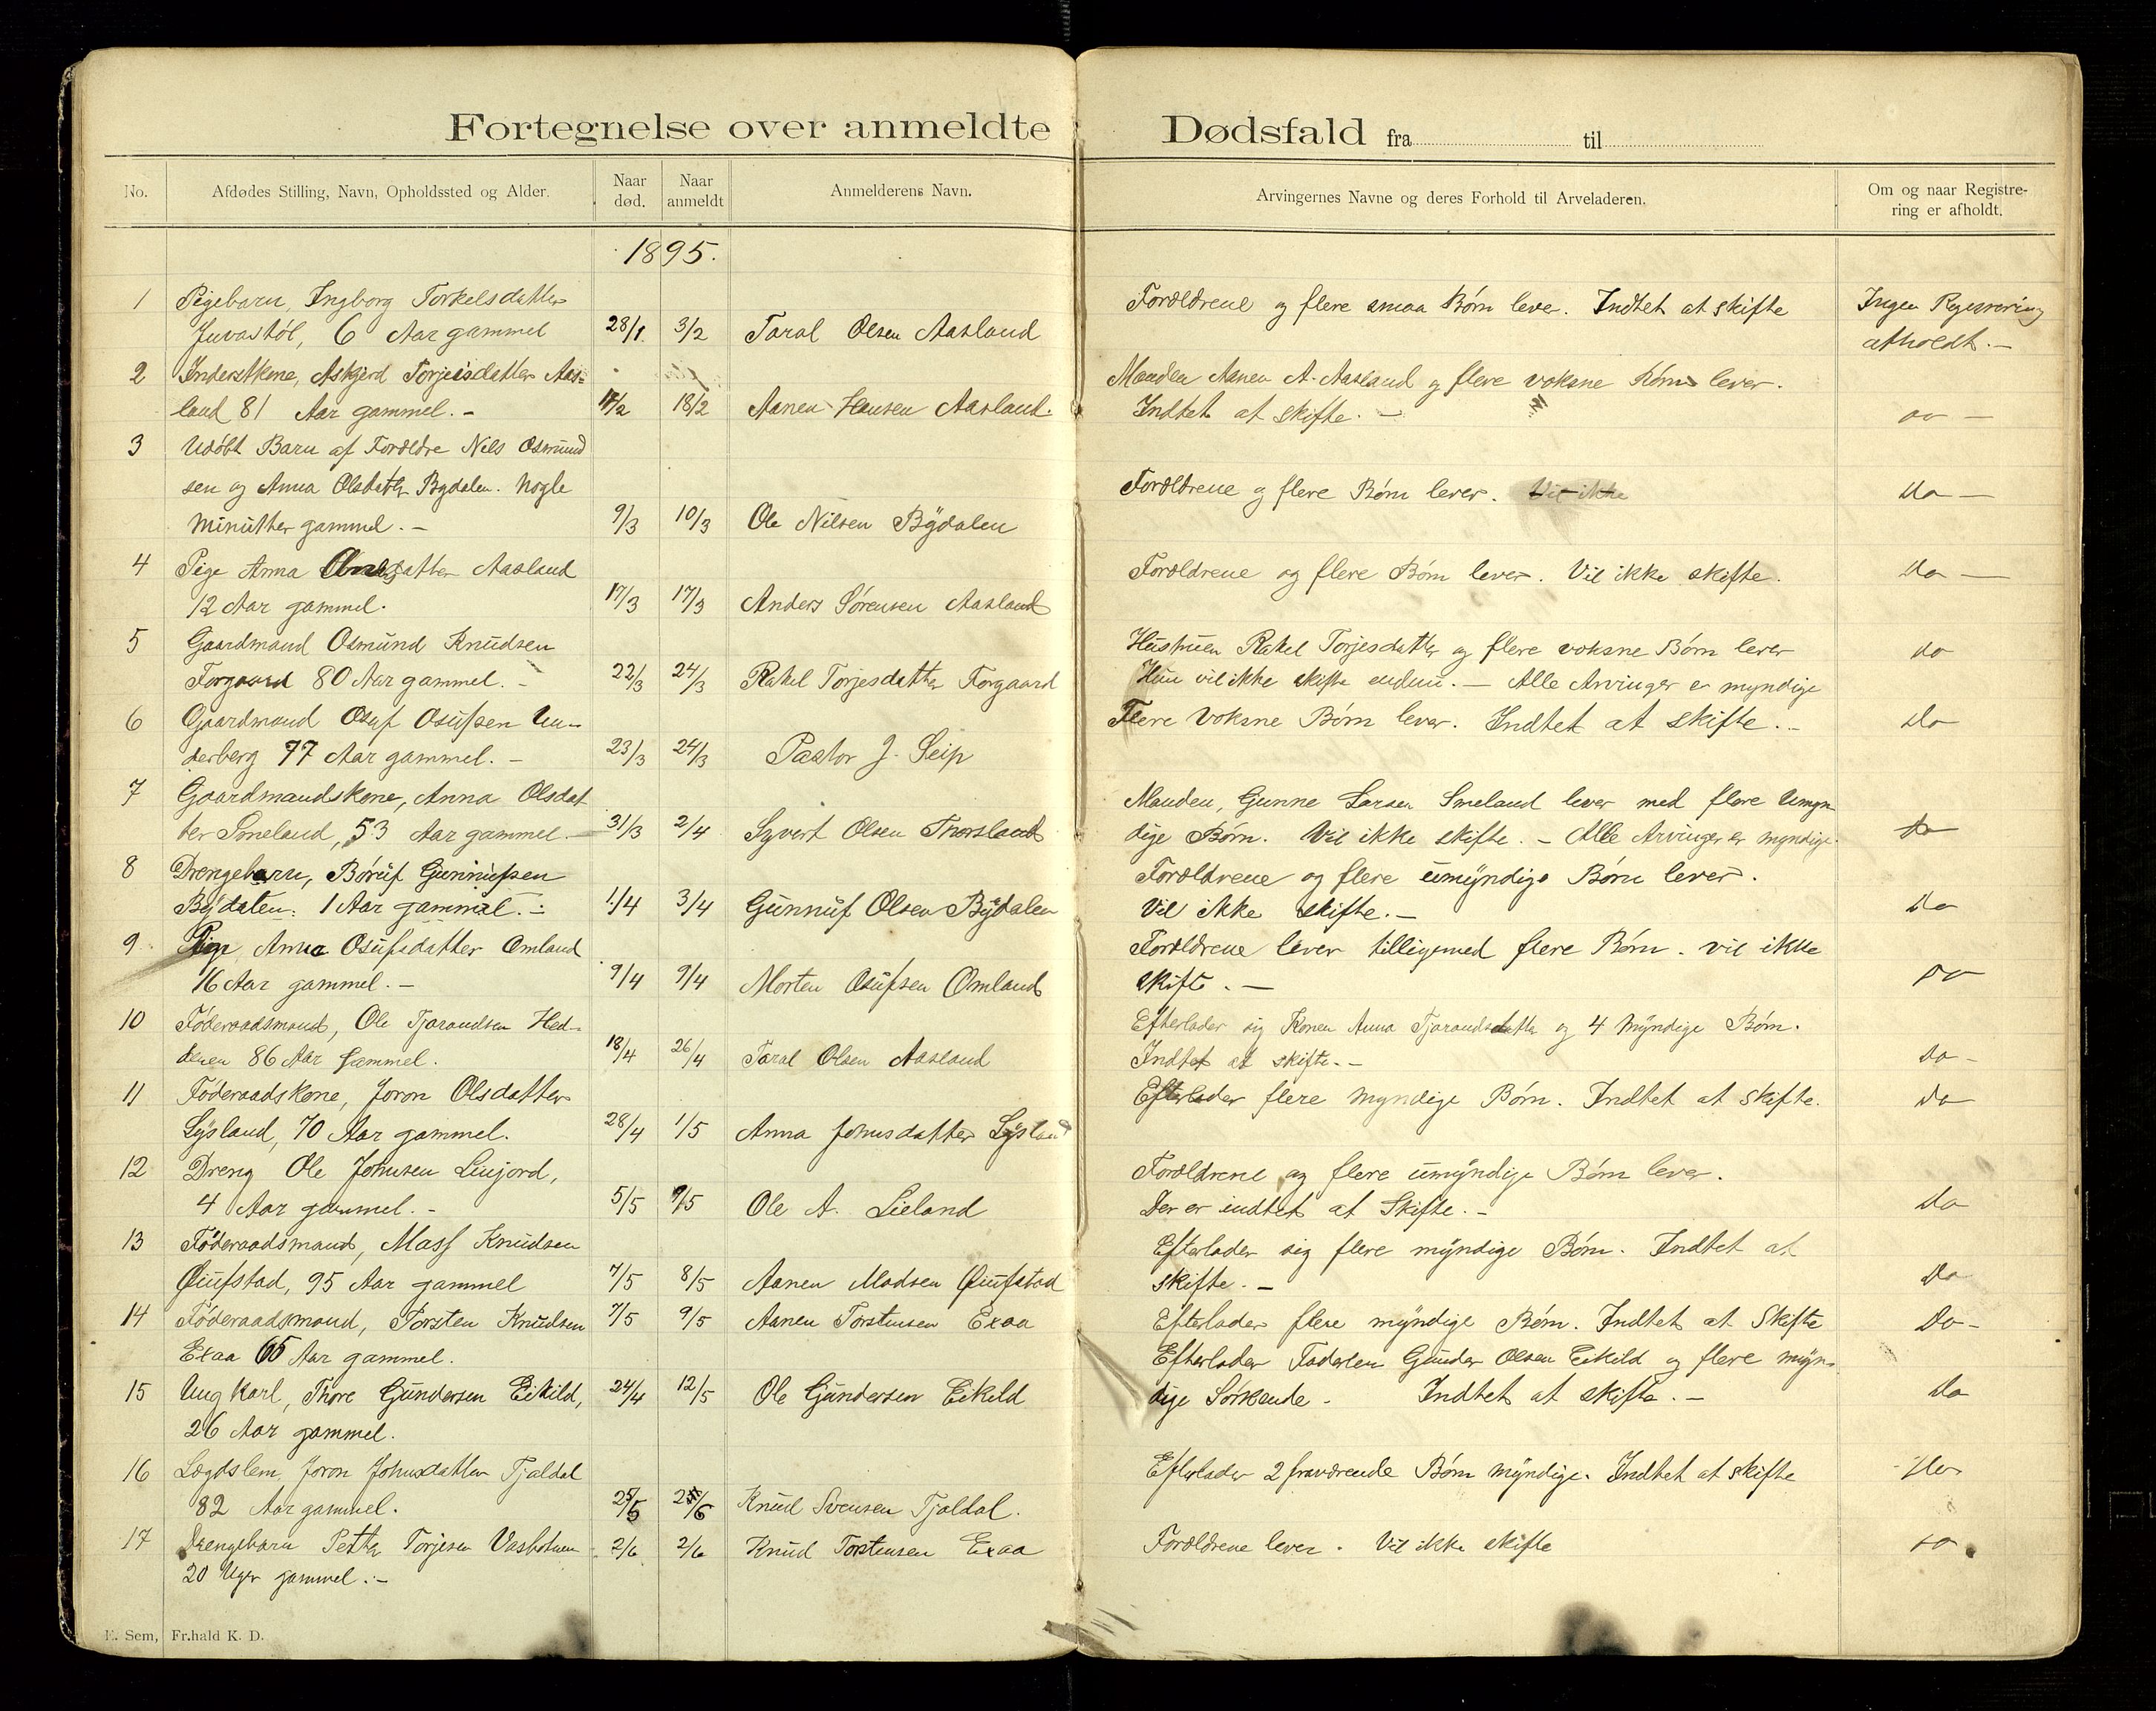 Fortegnelse over anmeldte Dødsfald fra til
No. Afdødes Stilling, Navn, Opholdssted og Alder. Naar død. Naar anmeldt Anmelderens Navn. Arvingernes Navne og deres Forhold til Arveladeren. Om og naar Registrering er afholdt.
1895.
1 Pigebarn, Ingborg Torkelsdatter Forældrene og flere smaa Børn lever. Indtet at skifte Ingen Regisrering
Juvastøl, 6 Aar gammel 28/1 3/2 Taral Olsen Aasland afholdt. -
2 Inderstkone, Askjerd Torjeisdatter Aas= Manden Aanen A. Aasland og flere voksne Børn lever.
land 81 Aar gammel. - 17/2 18/2 Aanen Hansen Aasland. Indtet at skifte. - do -
3 Udøbt Barn af Forældre Nils Osmund
sen og Anna Olsdatter Bydalen. Nogle Forældrene og flere Børn lever. Vil ikke do -
Minutter gammel. - 9/3 10/3 Ole Nilsen Bydalen
4 Pige Anna datter Aasland Forældrene og flere Børn lever. Vil ikke skifte. do -
12 Aar gammel. 17/3 17/3 Anders Sørensen Aasland
5 Gaardmand Osmund Knudsen Hustruen Rakel Torjesdatter og flere voksne Børn lever do
Forgaard 80 Aar gammel. - 22/3 24/3 Rakel Torjesdatter Forgaard Hun vil ikke skifte endnu. - Alle Arvinger er myndige
6 Gaardmand Osuf Osufsen Un- Flere voksne Børn lever. Indtet at skifte. - do
derberg 77 Aar gammel. - 23/3 24/3 Pastor J. Seip
7 Gaardmandskone, Anna Olsdat Manden, Gunne Larsen Smeland lever med flere Umyn
ter Smeland, 53 Aar gammel. - 31/3 2/4 Syvert Olsen Thorsland dige Børn. Vil ikke skifte. - Alle Arvinger er myndige. do
8 Drengebarn, Børuf Gunnufsen Forældrene og flere umyndige Børn lever.
Bydalen. 1 Aar gammel. - 1/4 3/4 Gunnuf Olsen Bydalen Vil ikke skifte. - do
9 Pige Anna Osufsdatter Omland Forældrene lever tilligemed flere Børn. vil ikke
16 Aar gammel. - 9/4 9/4 Morten Osufsen Omland skifte. - do
10 Føderaadsmand, Ole Tjarandsen Hed- Efterlader sig Konen Anna Tjarandsdatter og 4 Myndige Børn.
denen 86 Aar gammel. 18/4 26/4 Taral Olsen Aasland Indtet at skifte. - do -
11 Føderaadskone, Joron Olsdatter Efterlader flere Myndige Børn. Indtet at skifte. do
Lysland, 70 Aar gammel. 28/4 1/5 Anna Johnsdatter Lysland
12 Dreng Ole Johnsen Linjord, Forældrene og flere umyndige Børn lever.
4 Aar gammel. - 5/5 /5 Ole A. Lieland Der er indtet at Skifte. - do
13 Føderaadsmand, Mass Knudsen Efterlader sig flere myndige Børn. Indtet at
Øiufstad, 95 Aar gammel 7/5 8/5 Aanen Madsen Øiufstad skifte. - do
14 Føderaadsmand, Torsten Knudsen 7/5 9/5 Aanen Torstensen Exaa Efterlader flere myndige Børn. Indtet at Skifte do -
Exaa 65 Aar gammel. Efterlader Faderen Gunder Olsen Eikild og flere myn-
15 Ungkarl, Thore Gundersen Eikild, 24/4 12/5 Ole Gundersen Eikild dige Søskende. Indtet at skifte. - do
26 Aar gammel.
16 Lægdslem, Joron Johnsdatter Tjaldal Efterlader 2 fraværende Børn Myndige. Indtet at skifte do
82 Aar gammel. 25/5 /6 Knud Svensen Tjaldal.
17 Drengebarn Petter Torjesen Vasbotnen 2/6 2/6 Knud Torstensen Exaa Forældrene lever. Vil ikke skifte do
20 Uger gammel. -
E. Sem, Fr.hald K. D.